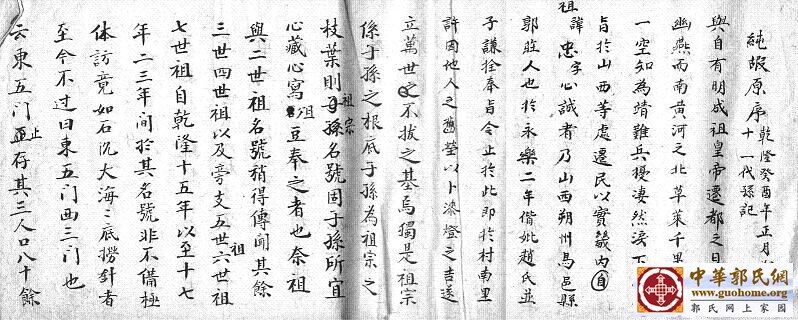 純嘏原序
乾隆癸酉年正月
十一代孫記
與自有明成祖皇帝遷都之日
幽燕而南黃河之北草萊千里
一空知為靖難兵擾凄然淚下
旨於山西等處遷民以實畿内自
祖諱忠字心誠者乃山西朔州馬邑縣
郭旺人也於永樂二年偕妣趙氏並
子謙拴奉旨令止於此即於村南里
許因地人之舊塋以卜漆燈之吉遂
立萬世不拔之基烏獨是祖宗
係子孫之根底子孫為祖宗之
枝葉則祖宗名號固子孫所宜
心藏心寫俎豆奉之者也奈祖
與二世祖名號稍得傳聞其餘
三世四世祖以及旁支五世六世祖
七世祖自乾隆十五年以至十七
年二三年間於其名號非不備極
体訪竟如石沉大海海底撈針者
至今不过曰東五门西三门也
云東五门止存其三人口八十餘
中華郭氏網
www.guohome.cn
郭氏网上家园